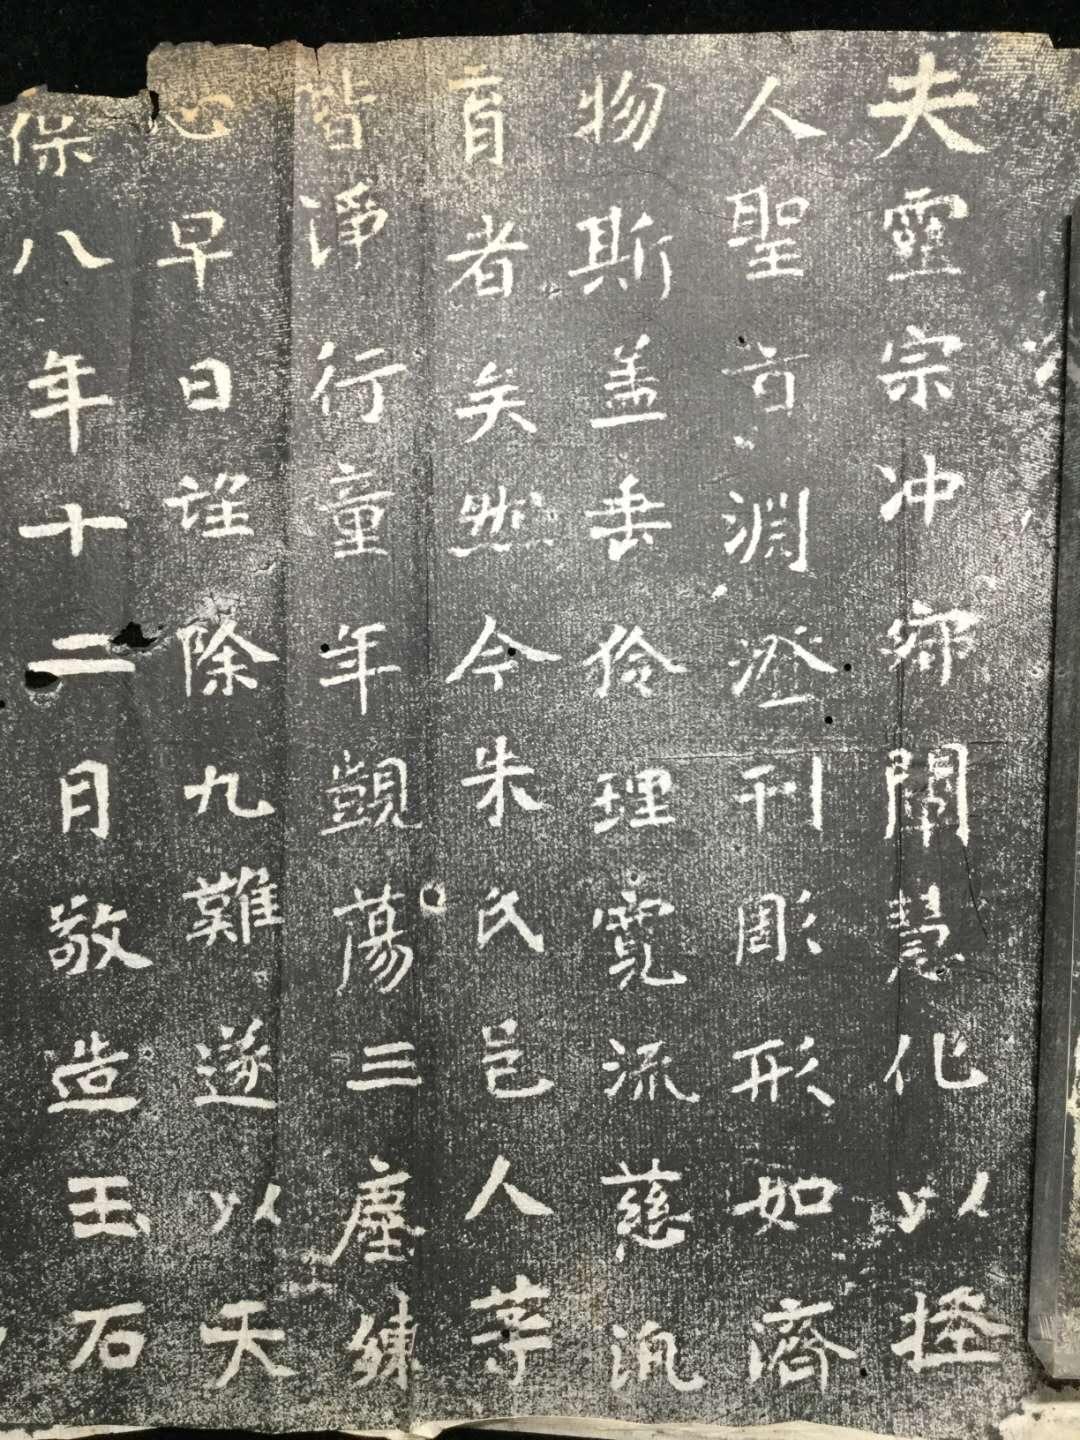 夫靈宗冲寂開慧化以拯
人聖旨渊澄刊彫形如濟
物斯盖垂伶理霓流慈汎
育者矣然今朱氏邑人等
皆淨行童年覬蕩三塵練
心早日誰除九難遂以天
保八年十二月敬造玉石